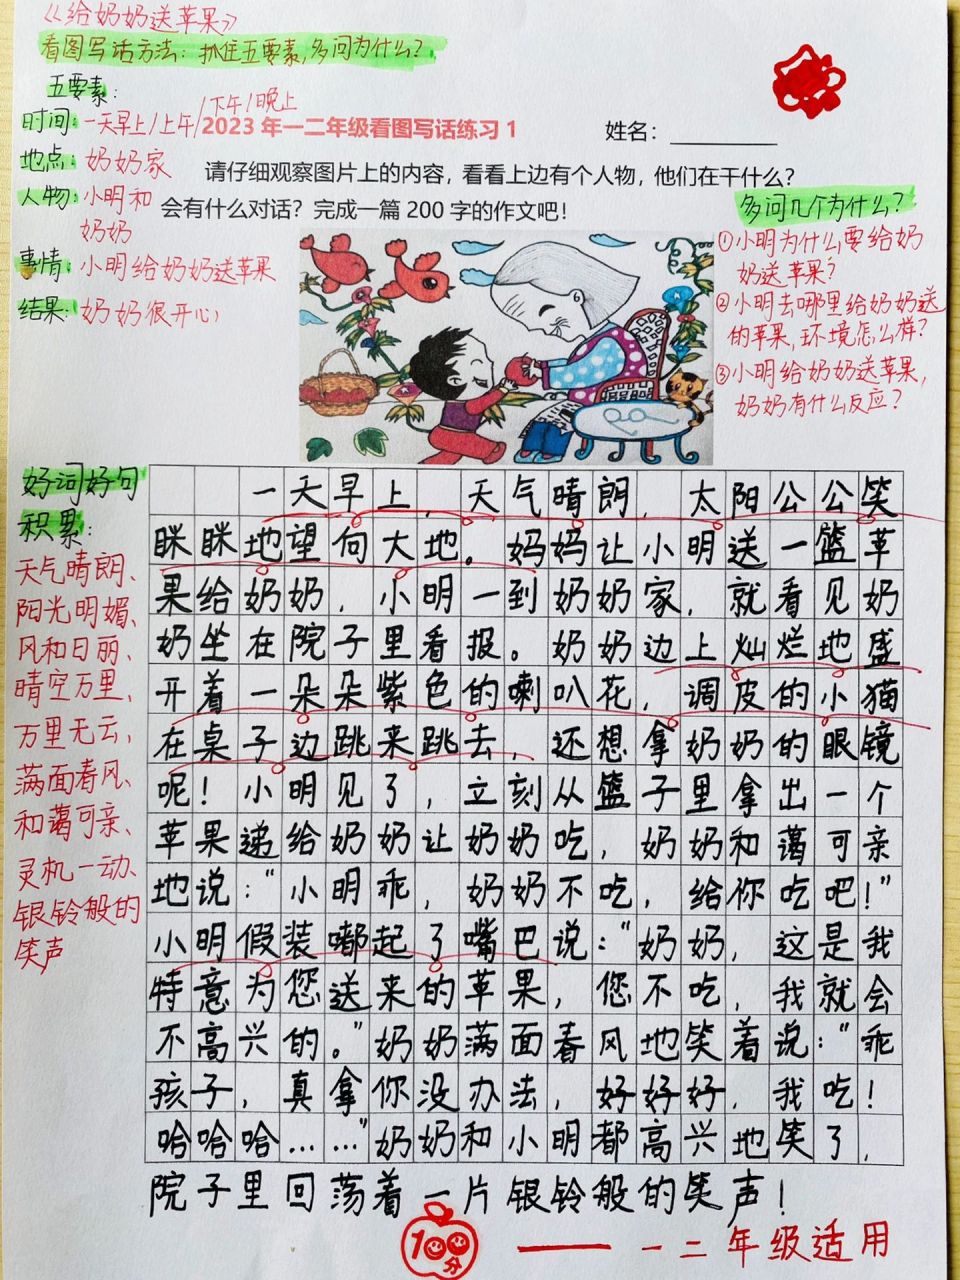 《给奶奶送苹果》
看图写话方法：抓住五要素，多问为什么？
五要素：
时间：一天早上/上午/下午/晚上
地点：奶奶家
人物：小明和
奶奶
事情：小明给奶奶送苹果
结果：奶奶很开心
2023年一二年级看图写话练习1
姓名：
请仔细观察图片上的内容，看看上边有个人物，他们在干什么？
会有什么对话？完成一篇200字的作文吧！
多问几个为什么？
①小明为什么要给奶
奶送苹果？
②小明去哪里给奶奶送
的苹果，环境怎么样？
③小明给奶奶送苹果，
奶奶有什么反应？
好词好句
积累：
天气晴朗、
阳光明媚、
风和日丽、
晴空万里、
万里无云、
满面春风、
和蔼可亲、
灵机一动、
银铃般的
笑声
一天早上，天气晴朗，太阳公公笑
眯眯地望向大地。妈妈让小明送一篮苹
果给奶奶，小明一到奶奶家，就看见奶
奶坐在院子里看报。奶奶边上灿烂地盛
开着一朵朵紫色的喇叭花，调皮的小猫
在桌子边跳来跳去，还想拿奶奶的眼镜
呢！小明见了，立刻从篮子里拿出一个
苹果递给奶奶让奶奶吃，奶奶和蔼可亲
地说：“小明乖，奶奶不吃，给你吃吧！”
小明假装嘟起了嘴巴说：“奶奶，这是我
特意为您送来的苹果，您不吃，我就会
不高兴的。”奶奶满面春风地笑着说：“乖
孩子，真拿你没办法，好好好，我吃！
哈哈哈……”奶奶和小明都高兴地笑了，
院子里回荡着一片银铃般的笑声！
100分
——一二年级适用